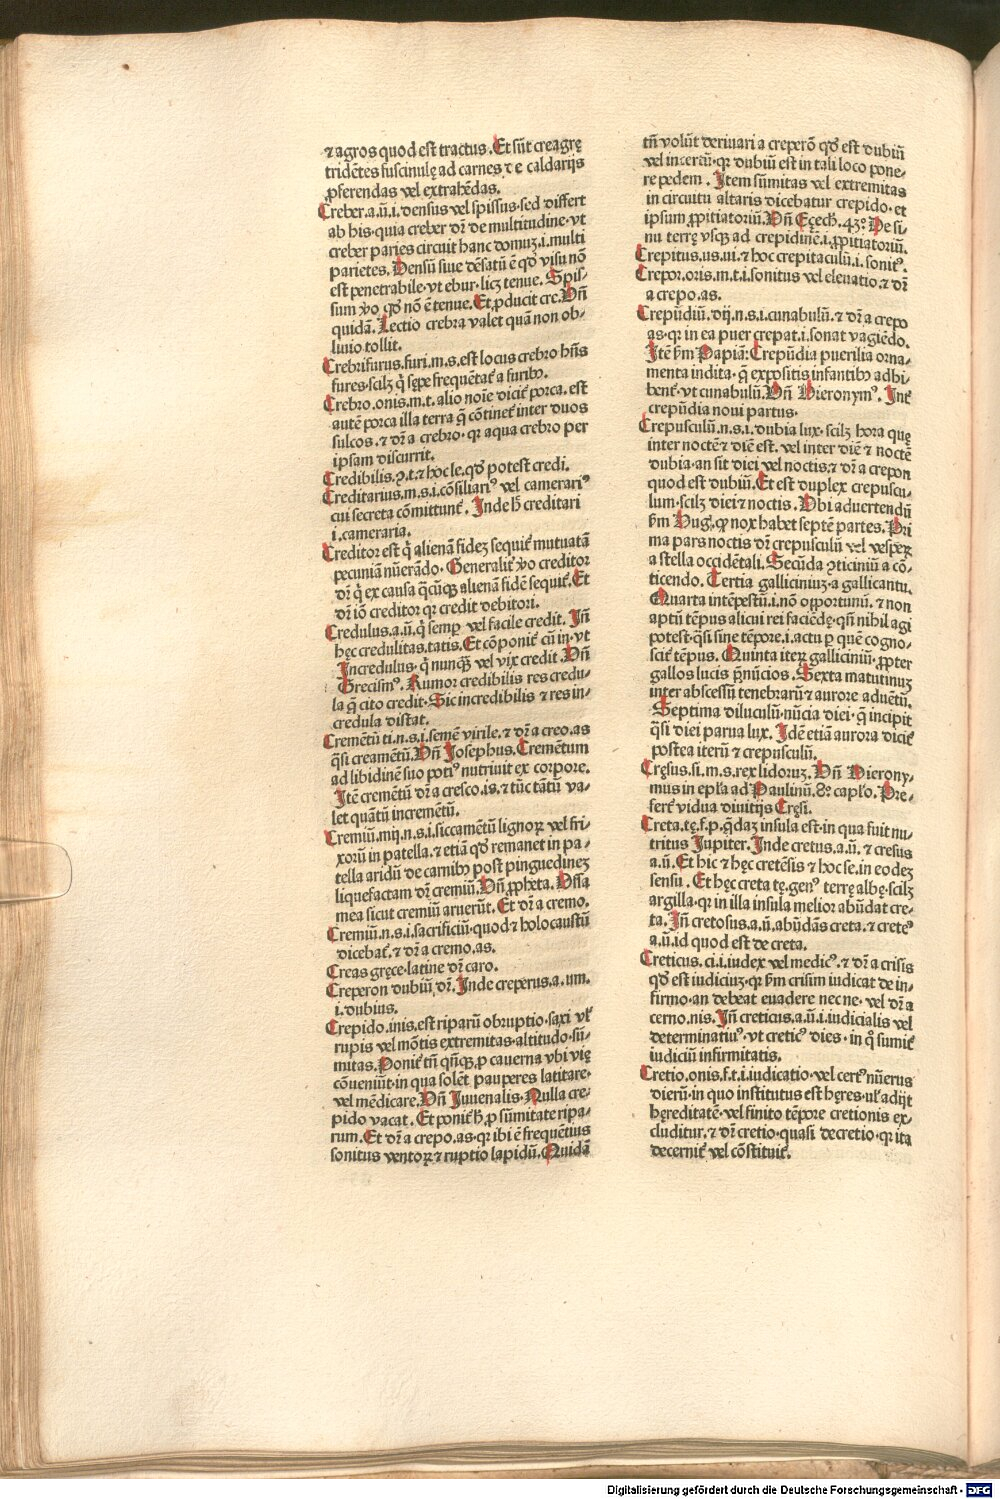 ⁊ agros quod est tractus. Et sũt creagrę
tridẽtes fuscinulę ad carnes ⁊ e caldarijs
ꝓferendas vel extrahẽdas.
Creber.a.ũ.i. densus vel spissus. sed differt
ab his. quia creber dr̃ de multitudine. vt
creber paries circuit hanc domuȝ.i. multi
parietes. Densũ siue dẽsatũ ẽ qd̃ visu nõ
est penetrabile. vt ebur. licȝ tenue. Spis-
sum ṽo qd̃ nõ ẽ tenue. Et ꝓducit cre. Vñ
quidã. Lectio crebra valet quã non ob-
liuio tollit.
Crebrifurus.furi.m.s. est locus crebro hñs
fures. scilȝ q̃ sępe frequẽtat̃ a furibꝰ.
Crebro.onis.m.t. alio noĩe dicit̃ porca. est
autẽ porca illa terra q̃ cõtinet̃ inter duos
sulcos. ⁊ dr̃ a crebro. qꝛ aqua crebro per
ipsam discurrit.
Credibilis.ꝛ.t. ⁊ hoc le. qd̃ potest credi.
Creditarius.m.s.i. cõsiliariꝰ vel camerariꝰ
cui secreta cõmittunt̃. Inde h̃ creditari
i. cameraria.
Creditor est q̃ alienã fideȝ sequit̃ mutuatã
pecuniã nũerãdo. Generalit̃ ṽo creditor
dr̃ q̃ ex causa q̃cũqȝ alienã fidẽ sequit̃. Et
dr̃ iõ creditor qꝛ credit debitori.
Credulus.a.ũ. q̃ semꝑ vel facile credit. Iñ
hęc credulitas.tatis. Et cõponit̃ cũ in. vt
Incredulus. q̃ nunqȝ vel vix credit. Vñ
Grecismꝰ. Rumor credibilis res credu-
la q̃ cito credit. Sic incredibilis ⁊ res in-
credula distat.
Cremẽtũ ti.n.s.i. semẽ virile. ⁊ dr̃ a creo.as
q̃si creamẽtũ. Vñ Josephus. Cremẽtum
ad libidinẽ suo potiꝰ nutriuit ex corpore.
Itẽ cremẽtũ dr̃ a cresco.is. ⁊ tũc tãtũ va-
let quãtũ incremẽtũ.
Cremiũ.mij.n.s.i. siccamẽtũ lignoꝝ vel fri-
xoriũ in patella. ⁊ etiã qd̃ remanet in pa-
tella aridũ de carnibꝰ post pinguedineȝ
liquefactam dr̃ cremiũ. Vñ ꝓpheta. Ossa
mea sicut cremiũ aruerũt. Et dr̃ a cremo.
Cremiũ.n.s.i. sacrificiũ. quod ⁊ holocaustũ
dicebat̃. ⁊ dr̃ a cremo.as.
Creas gręce. latine dr̃ caro.
Creperon dubiũ dr̃. Inde creperus.a.um.
i. dubius.
Crepido.inis. est riparũ obruptio. saxi vl̃
rupis vel mõtis extremitas. altitudo. sũ-
mitas. Ponit̃ tñ qñqȝ ꝓ cauerna vbi vię
cõueniũt. in qua solẽt pauperes latitare.
vel mẽdicare. Vñ Juuenalis. Nulla cre-
pido vacat. Et ponit̃ h̃ ꝓ sũmitate ripa-
rum. Et dr̃ a crepo.as. qꝛ ibi ẽ frequẽtius
sonitus ventoꝝ ⁊ ruptio lapidũ. Quidã
tñ volũt deriuari a creperõ qd̃ est dubiũ
vel incertũ. qꝛ dubiũ est in tali loco pone-
re pedem. Item sũmitas vel extremitas
in circuitu altaris dicebatur crepido. et
ipsum ꝓpitiatoriũ. Vñ Eçech. 43º. De si-
nu terrę vsqȝ ad crepidinẽ.i. ꝓpitiatoriũ.
Crepitus.us.ui. ⁊ hoc crepitaculũ.i. sonitꝰ.
Crepor.oris.m.t.i. sonitus vel eleuatio. ⁊ dr̃
a crepo.as.
Crepũdiũ.dij.n.s.i. cunabulũ. ⁊ dr̃ a crepo
as. qꝛ in ea puer crepat.i. sonat vagiẽdo.
Itẽ ẜm Papiã: Crepũdia puerilia orna-
menta indita. q̃ expositis infantibꝰ adhi-
bent̃. vt cunabulũ. Vñ Hieronymꝰ. Int̃
crepũdia noui partus.
Crepusculũ.n.s.i. dubia lux. scilȝ hora quę
inter noctẽ ⁊ diẽ est. vel inter diẽ ⁊ noctẽ
dubia. an sit diei vel noctis. ⁊ dr̃ a crepon
quod est dubiũ. Et est duplex crepuscu-
lum. scilȝ diei ⁊ noctis. Vbi aduertendũ
ẜm Hug̃. qꝙ nox habet septẽ partes. Pri
ma pars noctis dr̃ crepusculũ vel vesperꝝ
a stella occidẽtali. Secũda ꝯticiniũ a cõ-
ticendo. Tertia galliciniuȝ. a gallicantu.
Quarta intẽpestũ.i. nõ opportunũ. ⁊ non
aptũ tẽpus alicui rei faciẽdę. qñ nihil agi
potest. q̃si sine tẽpore.i. actu ꝑ quẽ cogno-
scit̃ tẽpus. Quinta iterꝝ galliciniũ. ꝓpter
gallos lucis p̃nũcios. Sexta matutinuȝ
inter abscessũ tenebrarũ ⁊ aurore aduẽtũ.
Septima diluculũ. nũcia diei. q̃ incipit
q̃si diei parua lux. Idẽ etiã aurora dicit̃
postea iterũ ⁊ crepusculũ.
Cręsus.si.m.s. rex lidoruȝ. Vñ Hierony-
mus in epl̃a ad Paulinũ. 8º capl̃o. Pre-
fert̃ vidua diuitijs Cręsi.
Creta.tę.f.p. q̃daȝ insula est. in qua fuit nu-
tritus Jupiter. Inde cretus.a.ũ. ⁊ cresus
a.ũ. Et hic ⁊ hęc cretẽsis ⁊ hoc se. in eodeȝ
sensu. Et hęc creta tę. genꝰ terrę albę. scilȝ
argilla. qꝛ in illa insula melior abũdat cre-
ta. Iñ cretosus.a.ũ. abũdãs creta. ⁊ cretẽꝰ
a.ũ. id quod est de creta.
Creticus.ci.i. iudex vel medicꝰ. ⁊ dr̃ a crisis
qd̃ est iudiciuȝ. qꝛ ẜm crisim iudicat de in-
firmo. an debeat euadere nec ne. vel dr̃ a
cerno.nis. Iñ creticus.a.ũ.i. iudicialis vel
determinatiuꝰ. vt creticꝰ dies. in q̃ sumit̃
iudiciũ infirmitatis.
Cretio.onis.f.t.i. iudicatio. vel certꝰ nũerus
dierũ. in quo institutus est hęres. vl̃ adijt
hęreditatẽ. vel finito tẽpore cretionis ex-
cluditur. ⁊ dr̃ cretio. quasi decretio. qꝛ ita
decernit̃ vel cõstituit̃.
Digitalisierung gefördert durch die Deutsche Forschungsgemeinschaft - DFG